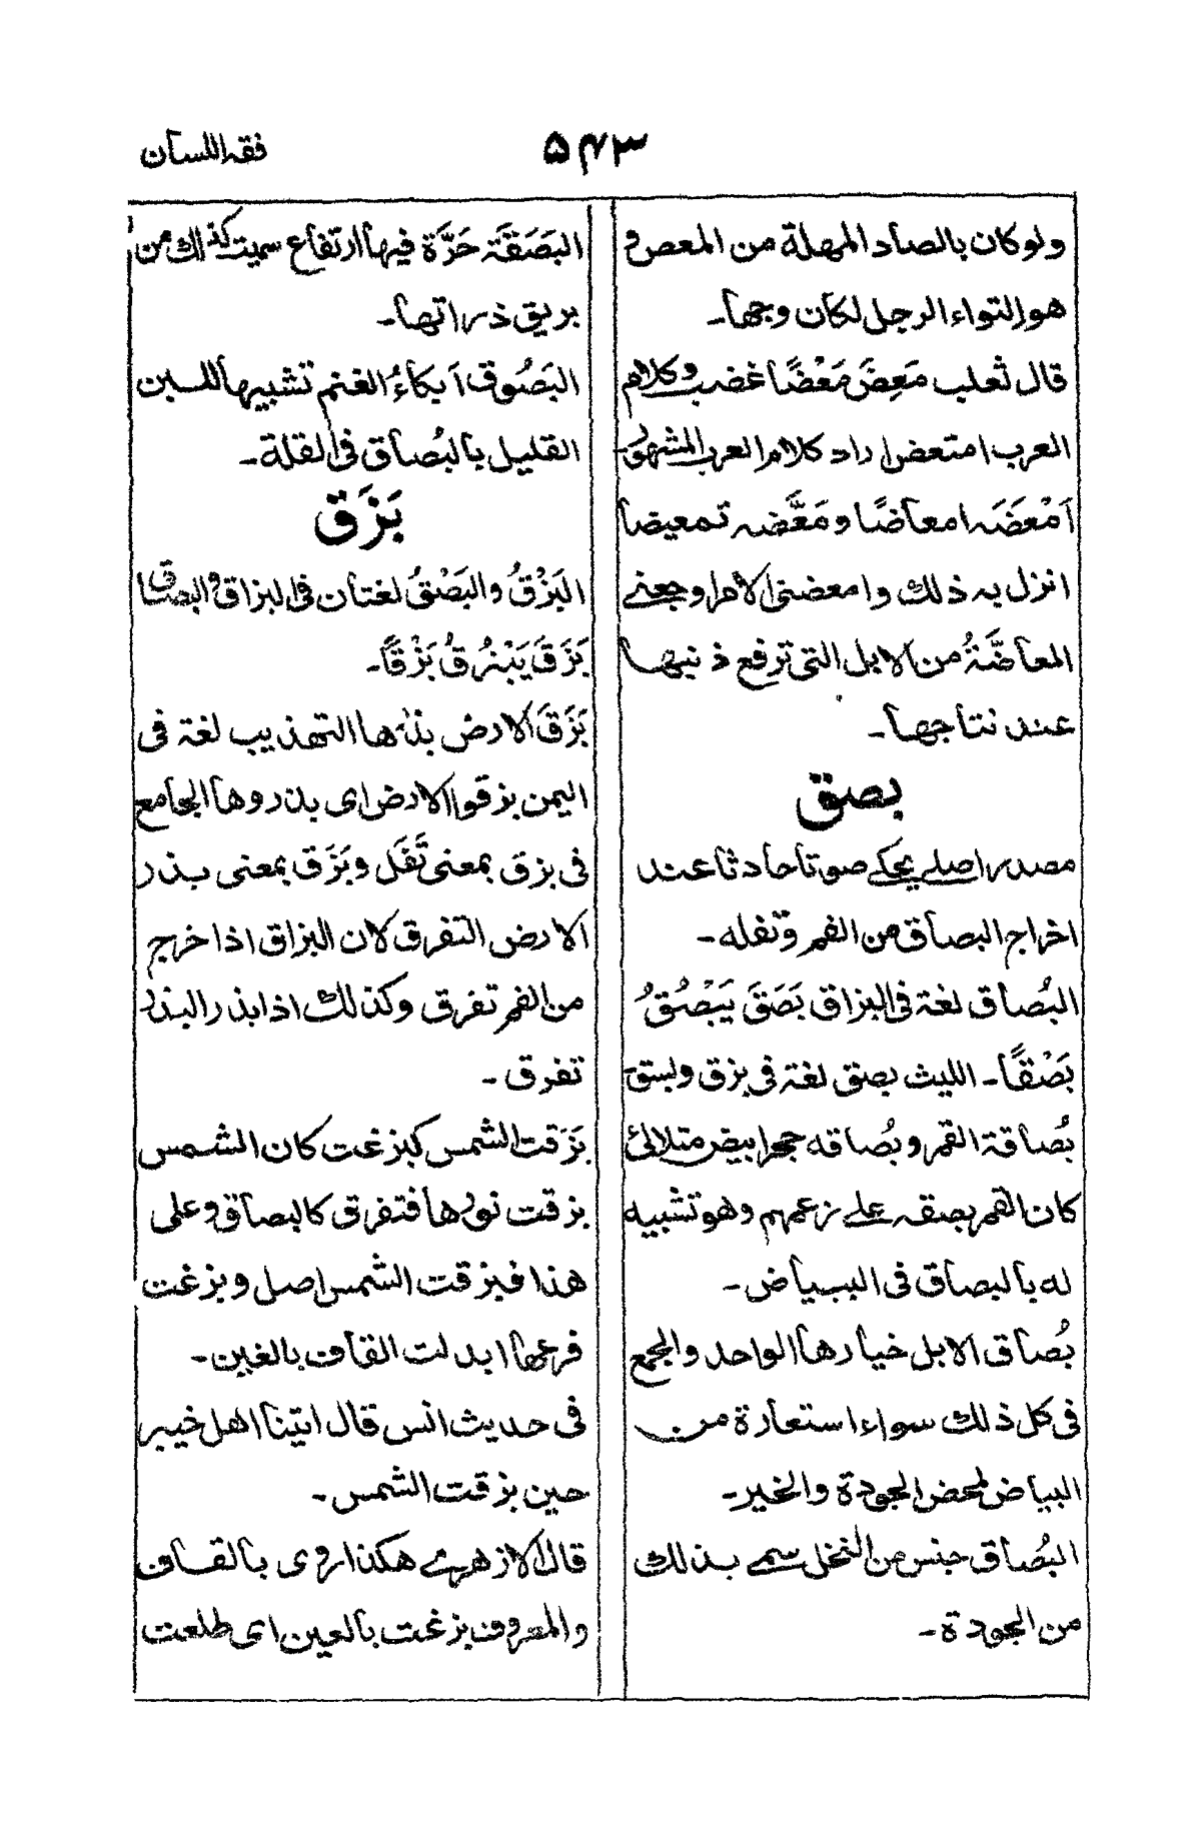 فقه اللسان
۵۴۳
ولو كان بالصاد المهملة من المعص و
هو التواء الرجل لكان وجها۔
قال ثعلب مَعِضَ مَعْضًا غضب وكلام
العرب امتعض اراد كلام العرب المشهور
اَمْعَضَه امعاضًا ومَعَّضه تمعيضا
انزل به ذلك وامعضنى الامر اوجعنے
المعاضَّةُ من الابل التى ترفع ذنبها
عند نتاجها۔
بصق
مصدر اصلے يحكے صوتا حادثا عند
اخراج البصاق من الفم وتفله۔
البُصاق لغة فى البزاق بَصَقَ يَبْصُقُ
بَصْقًا۔ الليث بصق لغة فى بزق وبسق
بُصاقة القمر وبُصاقه حجر ابيض متلالئ
كان القمر بصقه علے زعمهم وهو تشبيه
له بالبصاق فى البياض۔
بُصاق الابل خيارها الواحد والجمع
فى كل ذلك سواء استعارة من
البياض لمحض الجودة والخير۔
البُصاق جنس من النخل سمے بذلك
من الجودة۔
البَصَقَة حَرَّة فيها ارتفاع سميت كذلك من
بريق ذراتها۔
البَصُوق اَبكاءُ الغنم تشبيها للبن
القليل بالبُصاق فى القلة۔
بَزَق
البَزْقُ والبَصْقُ لغتان فى البزاق والبصاق
بَزَقَ يَبْزُقُ بَزْقًا۔
بَزَقَ الارض بذرها التهذيب لغة فى
اليمن بزقوا الارض اى بذروها الجامع
فى بزق بمعنى تَفَل وبَزَق بمعنى بذر
الارض التفرق لان البزاق اذا خرج
من الفم تفرق وكذلك اذا بذر البذر
تفرق۔
بَزَقت الشمس كبزغت كان الشمس
بزقت نورها فتفرق كالبصاق وعلى
هذا فبزقت الشمس اصل وبزغت
فرعها ابدلت القاف بالغين۔
فى حديث انس قال اتينا اهل خيبر
حين بزقت الشمس۔
قال الازهرى هكذا روى بالقاف
والمعروف بزغت بالغين اى طلعت